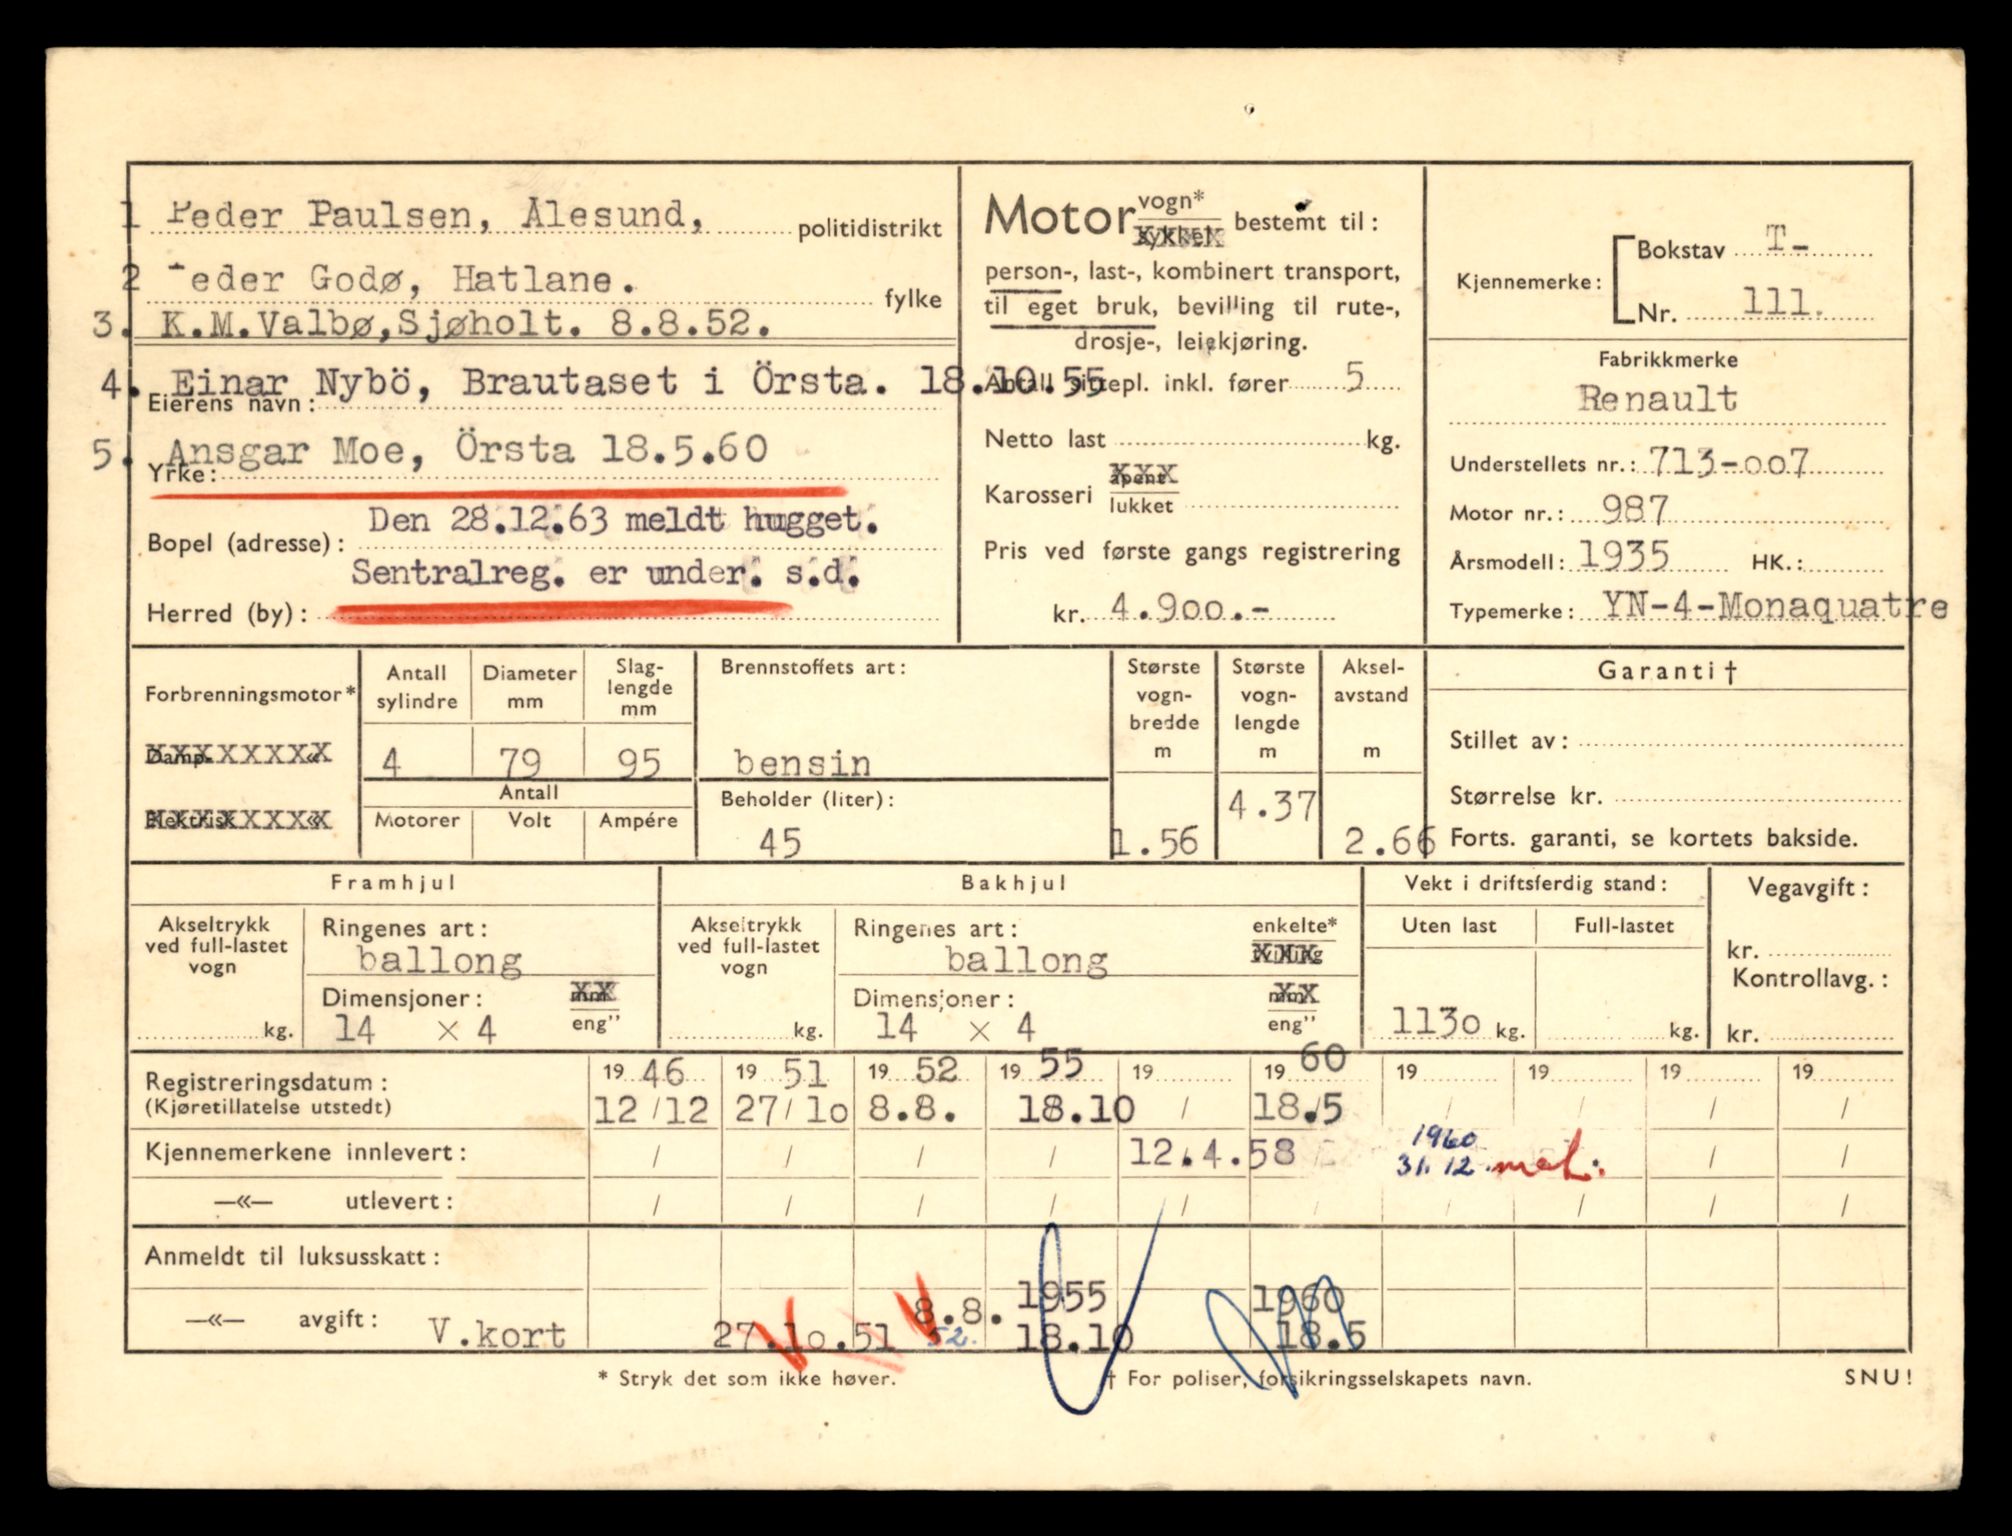 1 Peder Paulsen, Ålesund, politidistrikt
2 Peder Godø, Hatlane. fylke
3. K.M.Valbø,Sjøholt. 8.8.52.
4. Einar Nybö, Brautaset i Örsta. 18.10.55
Eierens navn:
5. Ansgar Moe, Örsta 18.5.60
Yrke:
Den 28.12.63 meldt hugget.
Bopel (adresse):
Sentralreg. er under. s.d.
Herred (by):
Motor vogn* bestemt til:
sykkel
person-, last-, kombinert transport,
til eget bruk, bevilling til rute-,
drosje-, leiekjøring.
Antall sittepl. inkl. fører 5
Netto last kg.
Karosseri åpent
lukket
Pris ved første gangs registrering
kr. 4.900.-
Kjennemerke: Bokstav T-
Nr. 111.
Fabrikkmerke
Renault
Understellets nr.: 713-007
Motor nr.: 987
Årsmodell: 1935 HK.:
Typemerke: YN-4-Monaquatre
Forbrenningsmotor*
Damp- «
Elektrisk «
Antall sylindre
Diameter mm
Slag-lengde mm
4 79 95
Antall
Motorer Volt Ampére
Brennstoffets art:
bensin
Beholder (liter):
45
Største vogn-bredde m
1.56
Største vogn-lengde m
4.37
Aksel-avstand m
2.66
Garanti †
Stillet av:
Størrelse kr.
Forts. garanti, se kortets bakside.
Framhjul
Akseltrykk ved full-lastet vogn
kg.
Ringenes art:
ballong
Dimensjoner: mm
14 × 4 eng"
Bakhjul
Akseltrykk ved full-lastet vogn
kg.
Ringenes art: enkelte*
ballong tvilling
Dimensjoner: mm
14 × 4 eng"
Vekt i driftsferdig stand:
Uten last Full-lastet
1130 kg. kg.
Vegavgift:
kr.
Kontrollavg.:
kr.
Registreringsdatum: 1946 1951 1952 1955 19 1960 19 19 19 19
(Kjøretillatelse utstedt) 12/12 27/10 8.8. 18.10 / 18.5 / / / /
Kjennemerkene innlevert: / / / / 12.4.58 1960 31.12 mot. / /
—«— utlevert: / / / / / / / / / /
Anmeldt til luksusskatt:
—«— avgift: V.kort 27.10.51 8.8. 52. 1955 18.10 1960 18.5
* Stryk det som ikke høver. † For poliser, forsikringsselskapets navn. SNU!